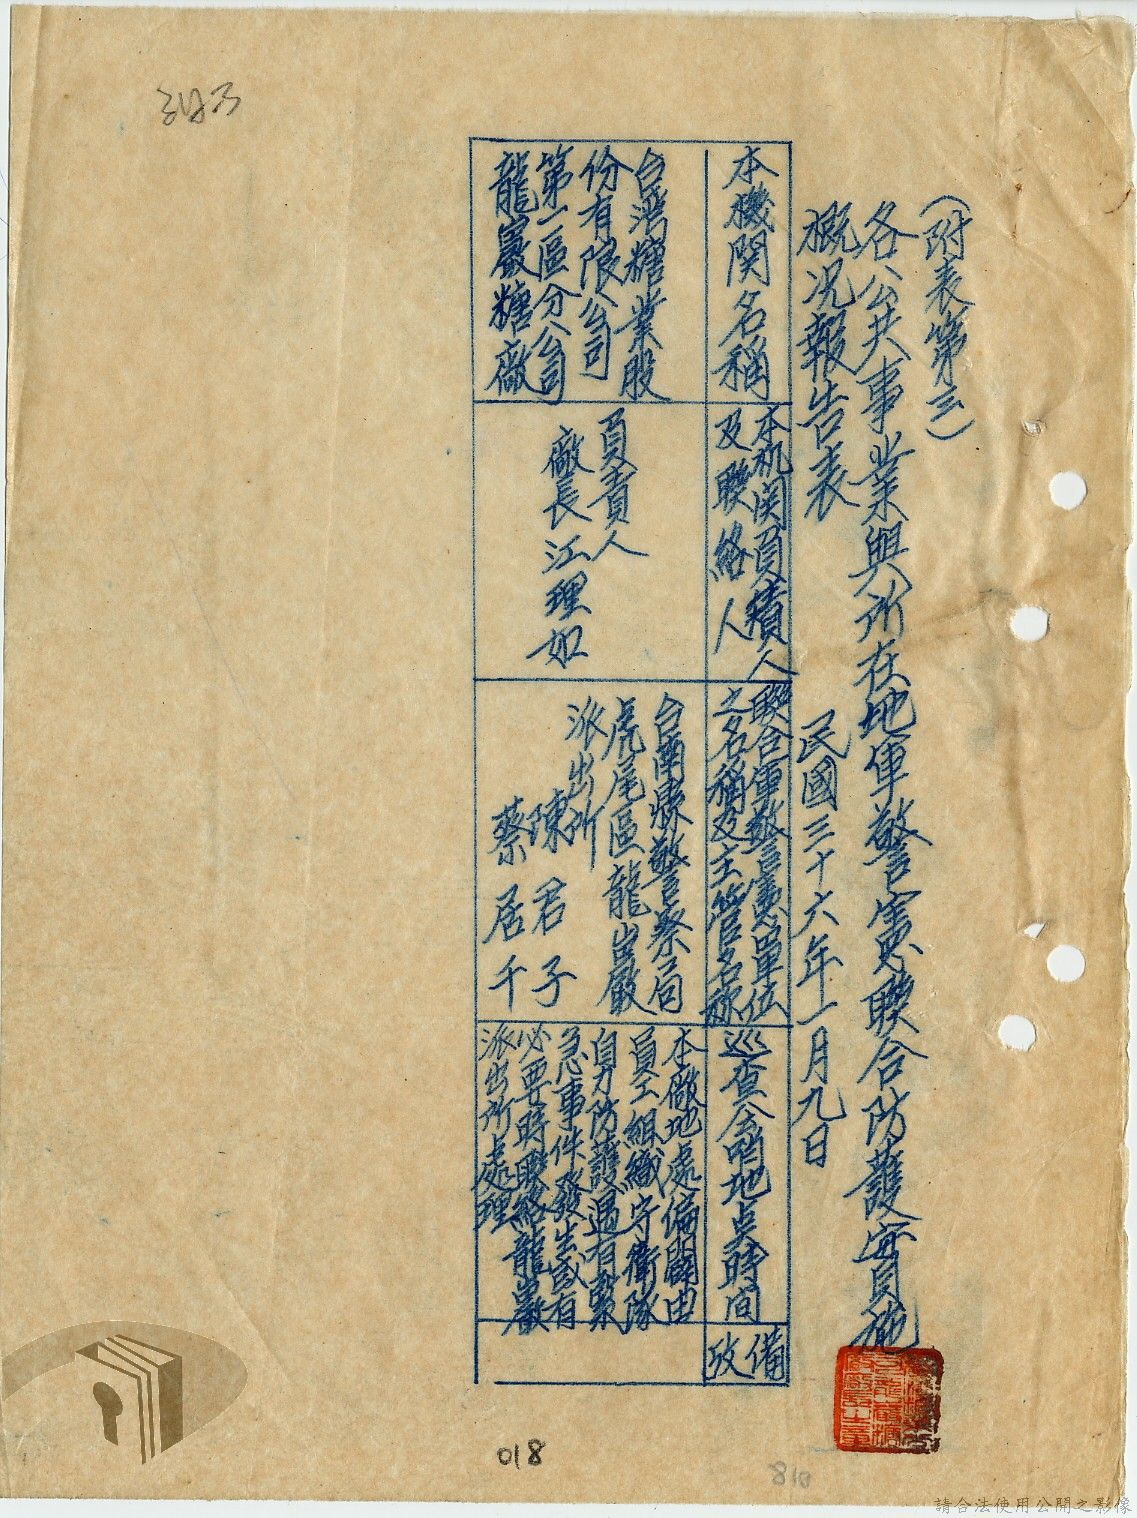 (附表第三)
各公共事業與所在地軍警憲聯合防護實施
概况報告表
民國三十六年一月九日
本機関名稱
台湾糖業股
份有限公司
第一區分公司
龍巖糖廠
本机関負責人
及聯絡人
負責人
廠長江理如
聯合軍警憲單位
之名稱及主管名称
台南縣警察局
虎尾區龍巖
派出所
陳君子
蔡居千
巡查会哨地点時间
本廠地處偏僻由
員工組織守衛隊
自力防護遇有緊
急事件發生或有
必要時聯絡龍巖
派出所處理
備攷
018
018
請合法使用公開之影像